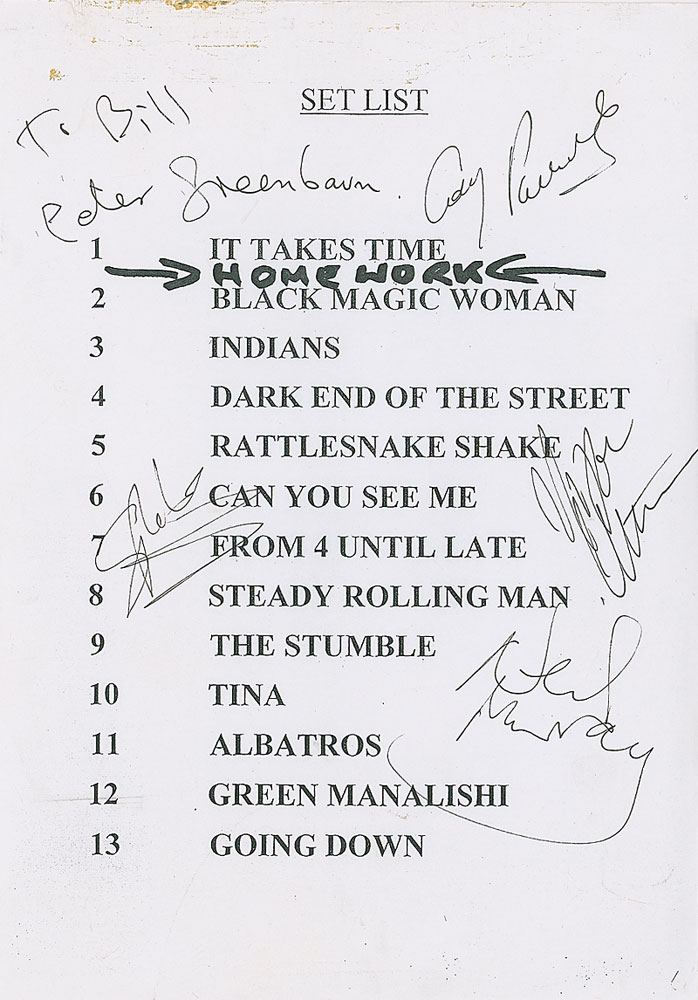 SET LIST
To Bill
Peter Greenbaum.
1 IT TAKES TIME
HOME WORK
2 BLACK MAGIC WOMAN
3 INDIANS
4 DARK END OF THE STREET
5 RATTLESNAKE SHAKE
6 CAN YOU SEE ME
7 FROM 4 UNTIL LATE
8 STEADY ROLLING MAN
9 THE STUMBLE
10 TINA
Neil
Murray
11 ALBATROS
12 GREEN MANALISHI
13 GOING DOWN